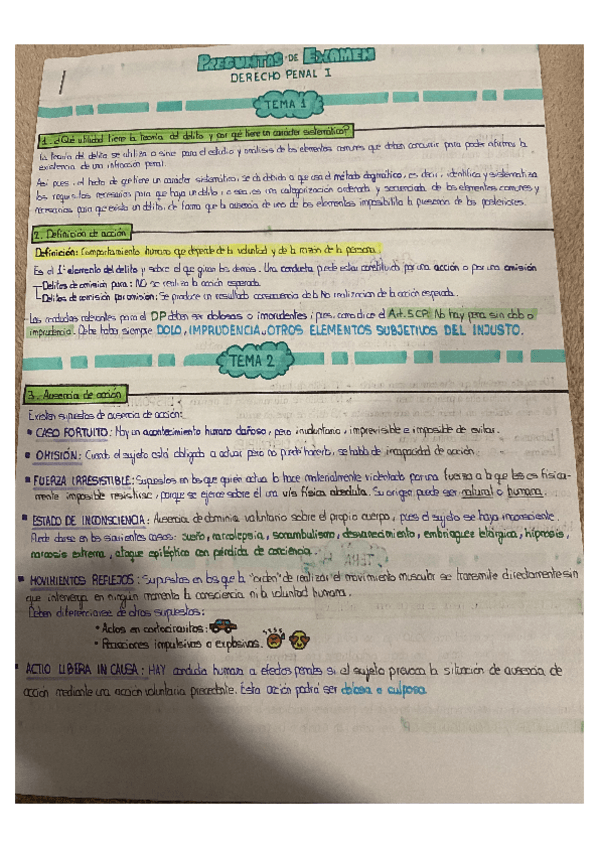 PREGUNTAS DE EXAMEN
DERECHO PENAL I
TEMA 1
1. ¿Qué utilidad tiene la Teoría del delito y por qué tiene un carácter sistemático?
La Teoría del delito se utiliza o sirve para el estudio y análisis de los elementos comunes que deben concurrir para poder afirmar la
existencia de una infracción penal.
Así pues, el hecho de que tiene un carácter sistemático, se da debido a que usa el método dogmático, es decir, identifica y sistematiza
los requisitos necesarios para que haya un delito, o sea, es una categorización ordenada y secuenciada de los elementos comunes y
necesarios para que exista un delito, de forma que la ausencia de uno de los elementos imposibilita la presencia de los posteriores.
2. Definición de acción
Definición: Comportamiento humano que depende de la voluntad y de la razón de la persona.
Es el 1er elemento del delito y sobre el que giran los demás. Una conducta puede estar constituida por una acción o por una omisión
Delitos de omisión pura: NO se realiza la acción esperada.
Delitos de comisión por omisión: Se produce un resultado consecuencia de la No realización de la acción esperada.
Las conductas relevantes para el DP deben ser dolosas o imprudentes; pues, como dice el Art. 5 CP: No hay pena sin dolo o
imprudencia. Debe haber siempre DOLO, IMPRUDENCIA u OTROS ELEMENTOS SUBJETIVOS DEL INJUSTO.
TEMA 2
3. Ausencia de acción
Existen supuestos de ausencia de acción:
• CASO FORTUITO: Hay un acontecimiento humano dañoso, pero involuntario, imprevisible e imposible de evitar.
• OMISIÓN: Cuando el sujeto está obligado a actuar pero no puede hacerlo, se habla de incapacidad de acción.
• FUERZA IRRESISTIBLE: Supuestos en los que quién actúa lo hace materialmente violentado por una fuerza a la que les es física-
mente imposible resistirse, porque se ejerce sobre él una vis física absoluta. Su origen puede ser natural o humana.
• ESTADO DE INCONSCIENCIA: Ausencia de dominio voluntario sobre el propio cuerpo, pues el sujeto se haya inconsciente.
Puede darse en los siguientes casos: sueño, narcolepsia, sonambulismo, desvanecimiento, embriaguez letárgica, hipnosis,
narcosis extrema, ataque epiléptico con pérdida de conciencia.
• MOVIMIENTOS REFLEJOS: Supuestos en los que la "orden" de realizar el movimiento muscular se transmite directamente sin
que intervenga en ningún momento la consciencia ni la voluntad humana.
Deben diferenciarse de otros supuestos:
• Actos en cortocircuitos:
• Reacciones impulsivas o explosivas.
• ACTIO LIBERA IN CAUSA: HAY conducta humana a efectos penales si el sujeto provoca la situación de ausencia de
acción mediante una acción voluntaria precedente. Ésta acción podrá ser dolosa o culposa